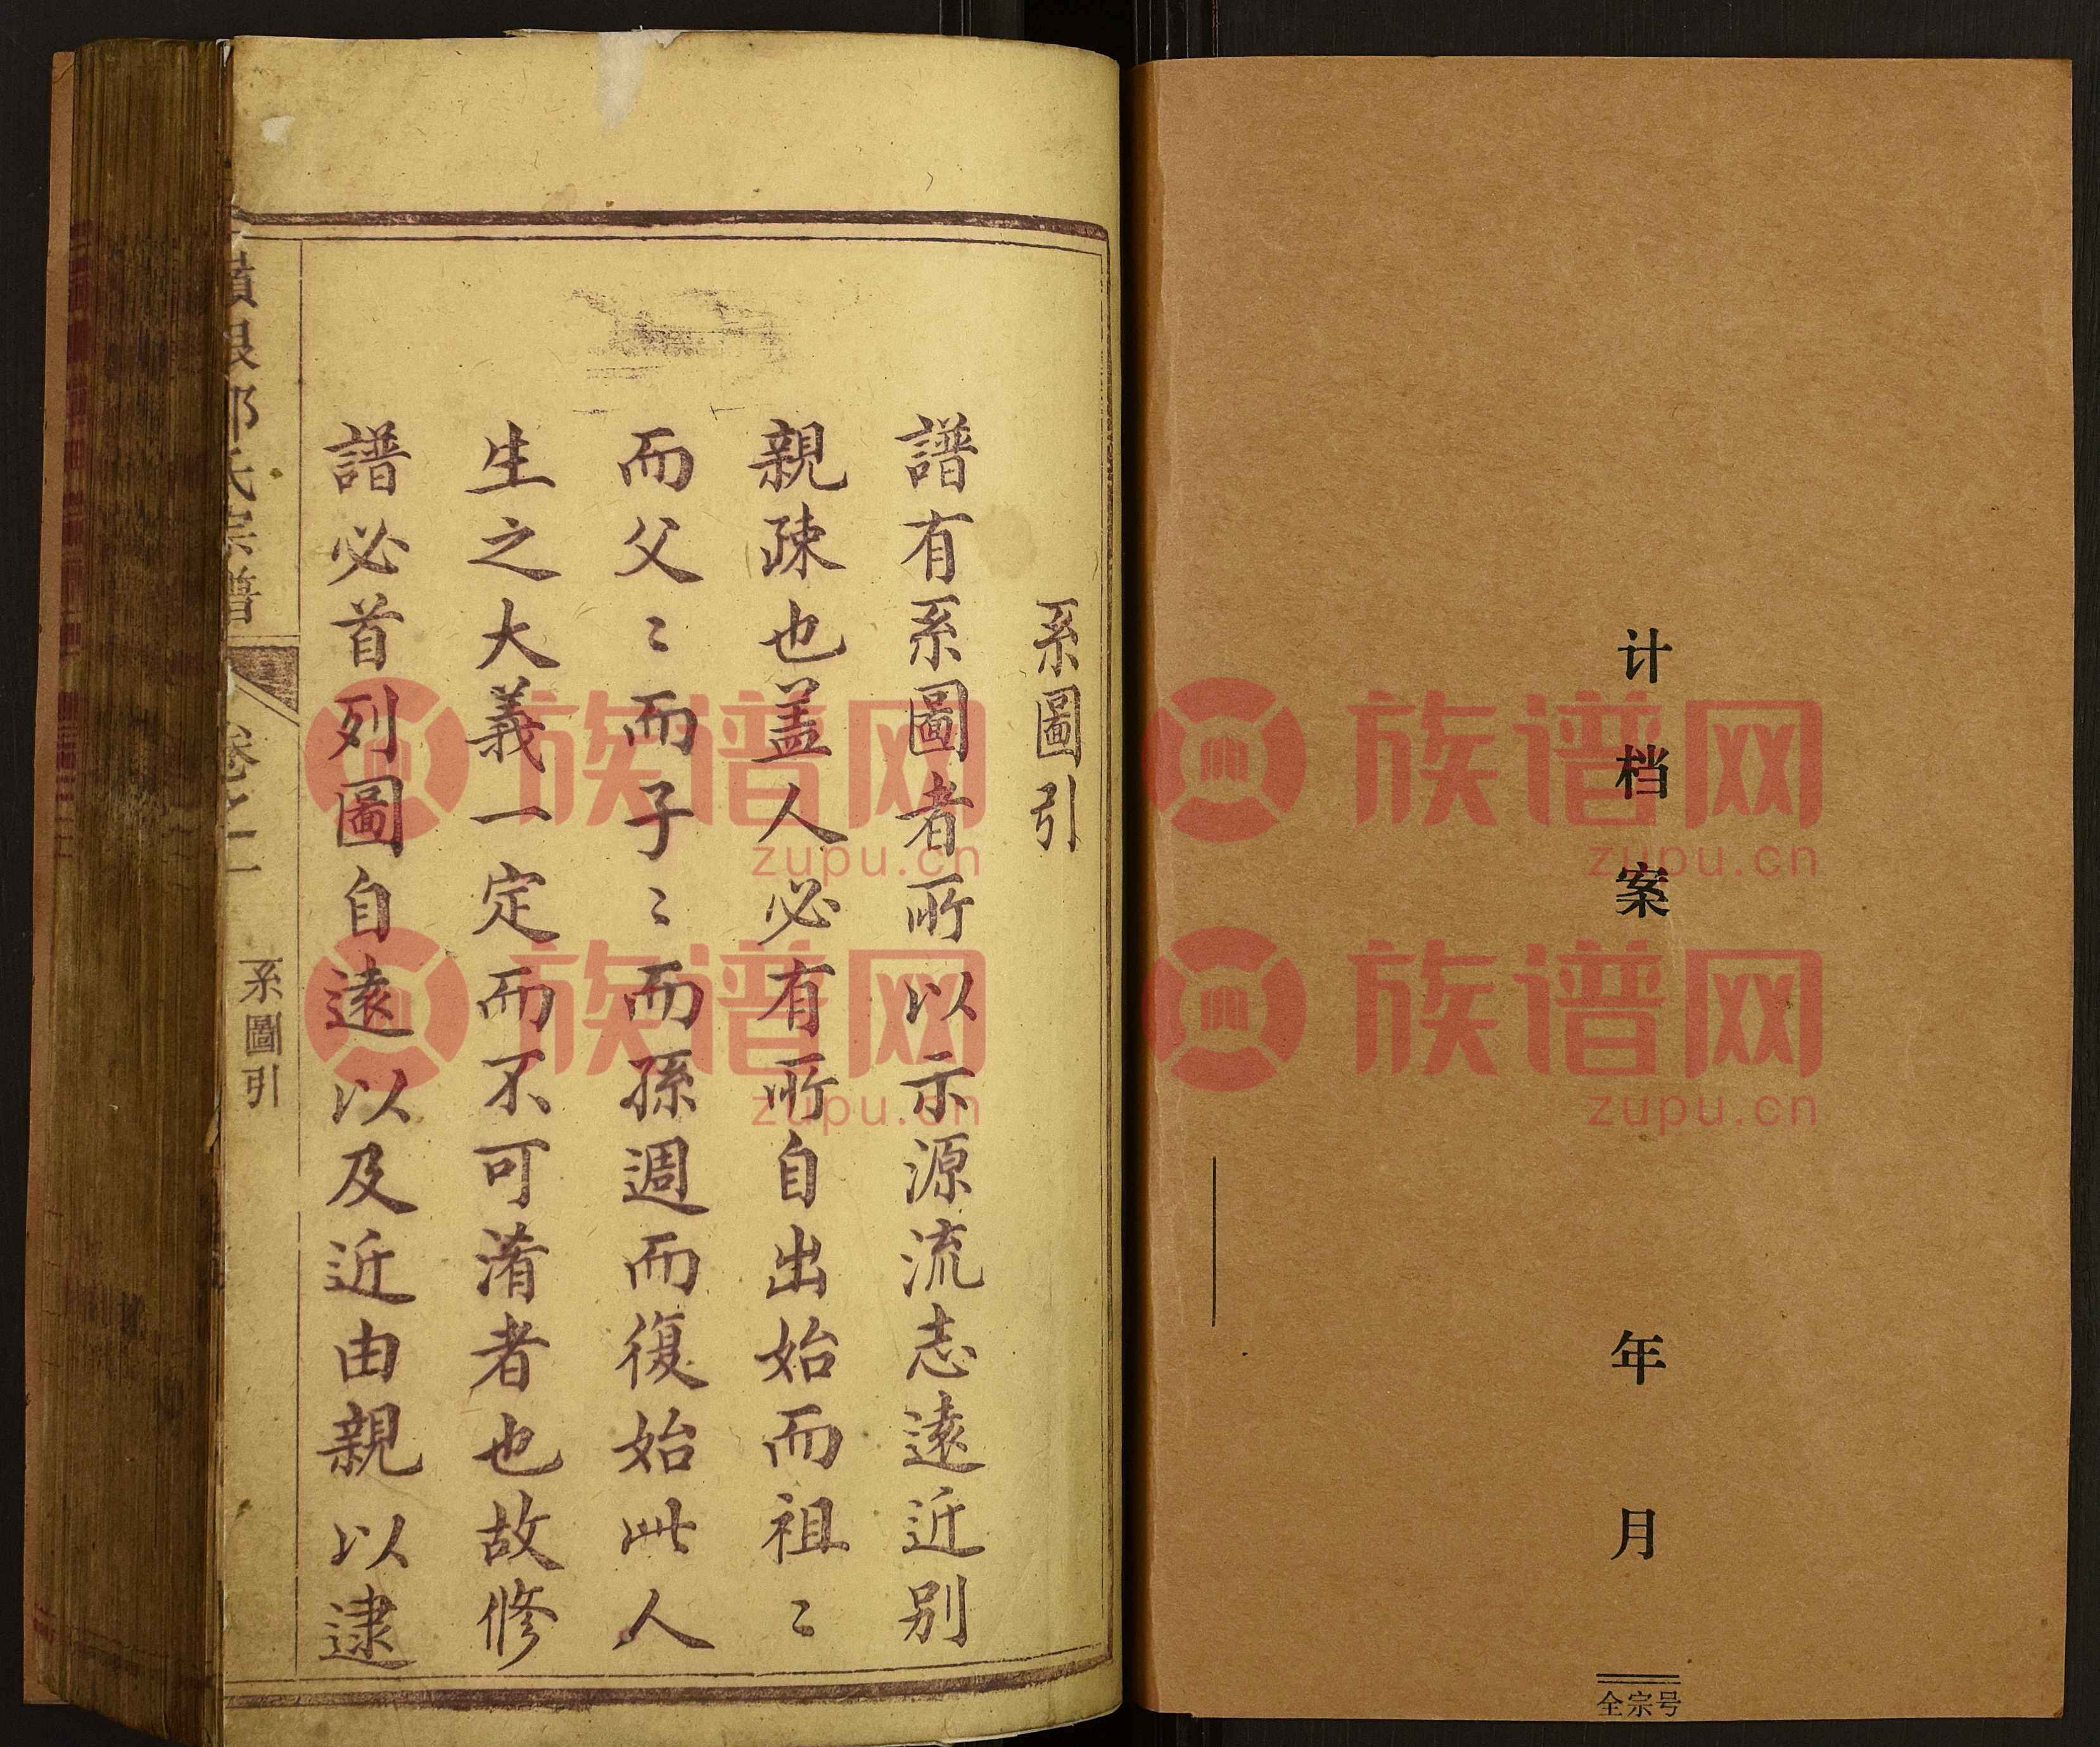 计档案 年 月
全宗号
系圖引
譜有系圖者所以示源流志遠近別
親疎也盖人必有所自出始而祖〻
而父〻而子〻而孫週而復始此人
生之大義一定而不可淆者也故修
譜必首列圖自遠以及近由親以逮
氏宗譜
卷之一
系圖引
族谱网
zupu.cn
族谱网
zupu.cn
族谱网
zupu.cn
族谱网
zupu.cn